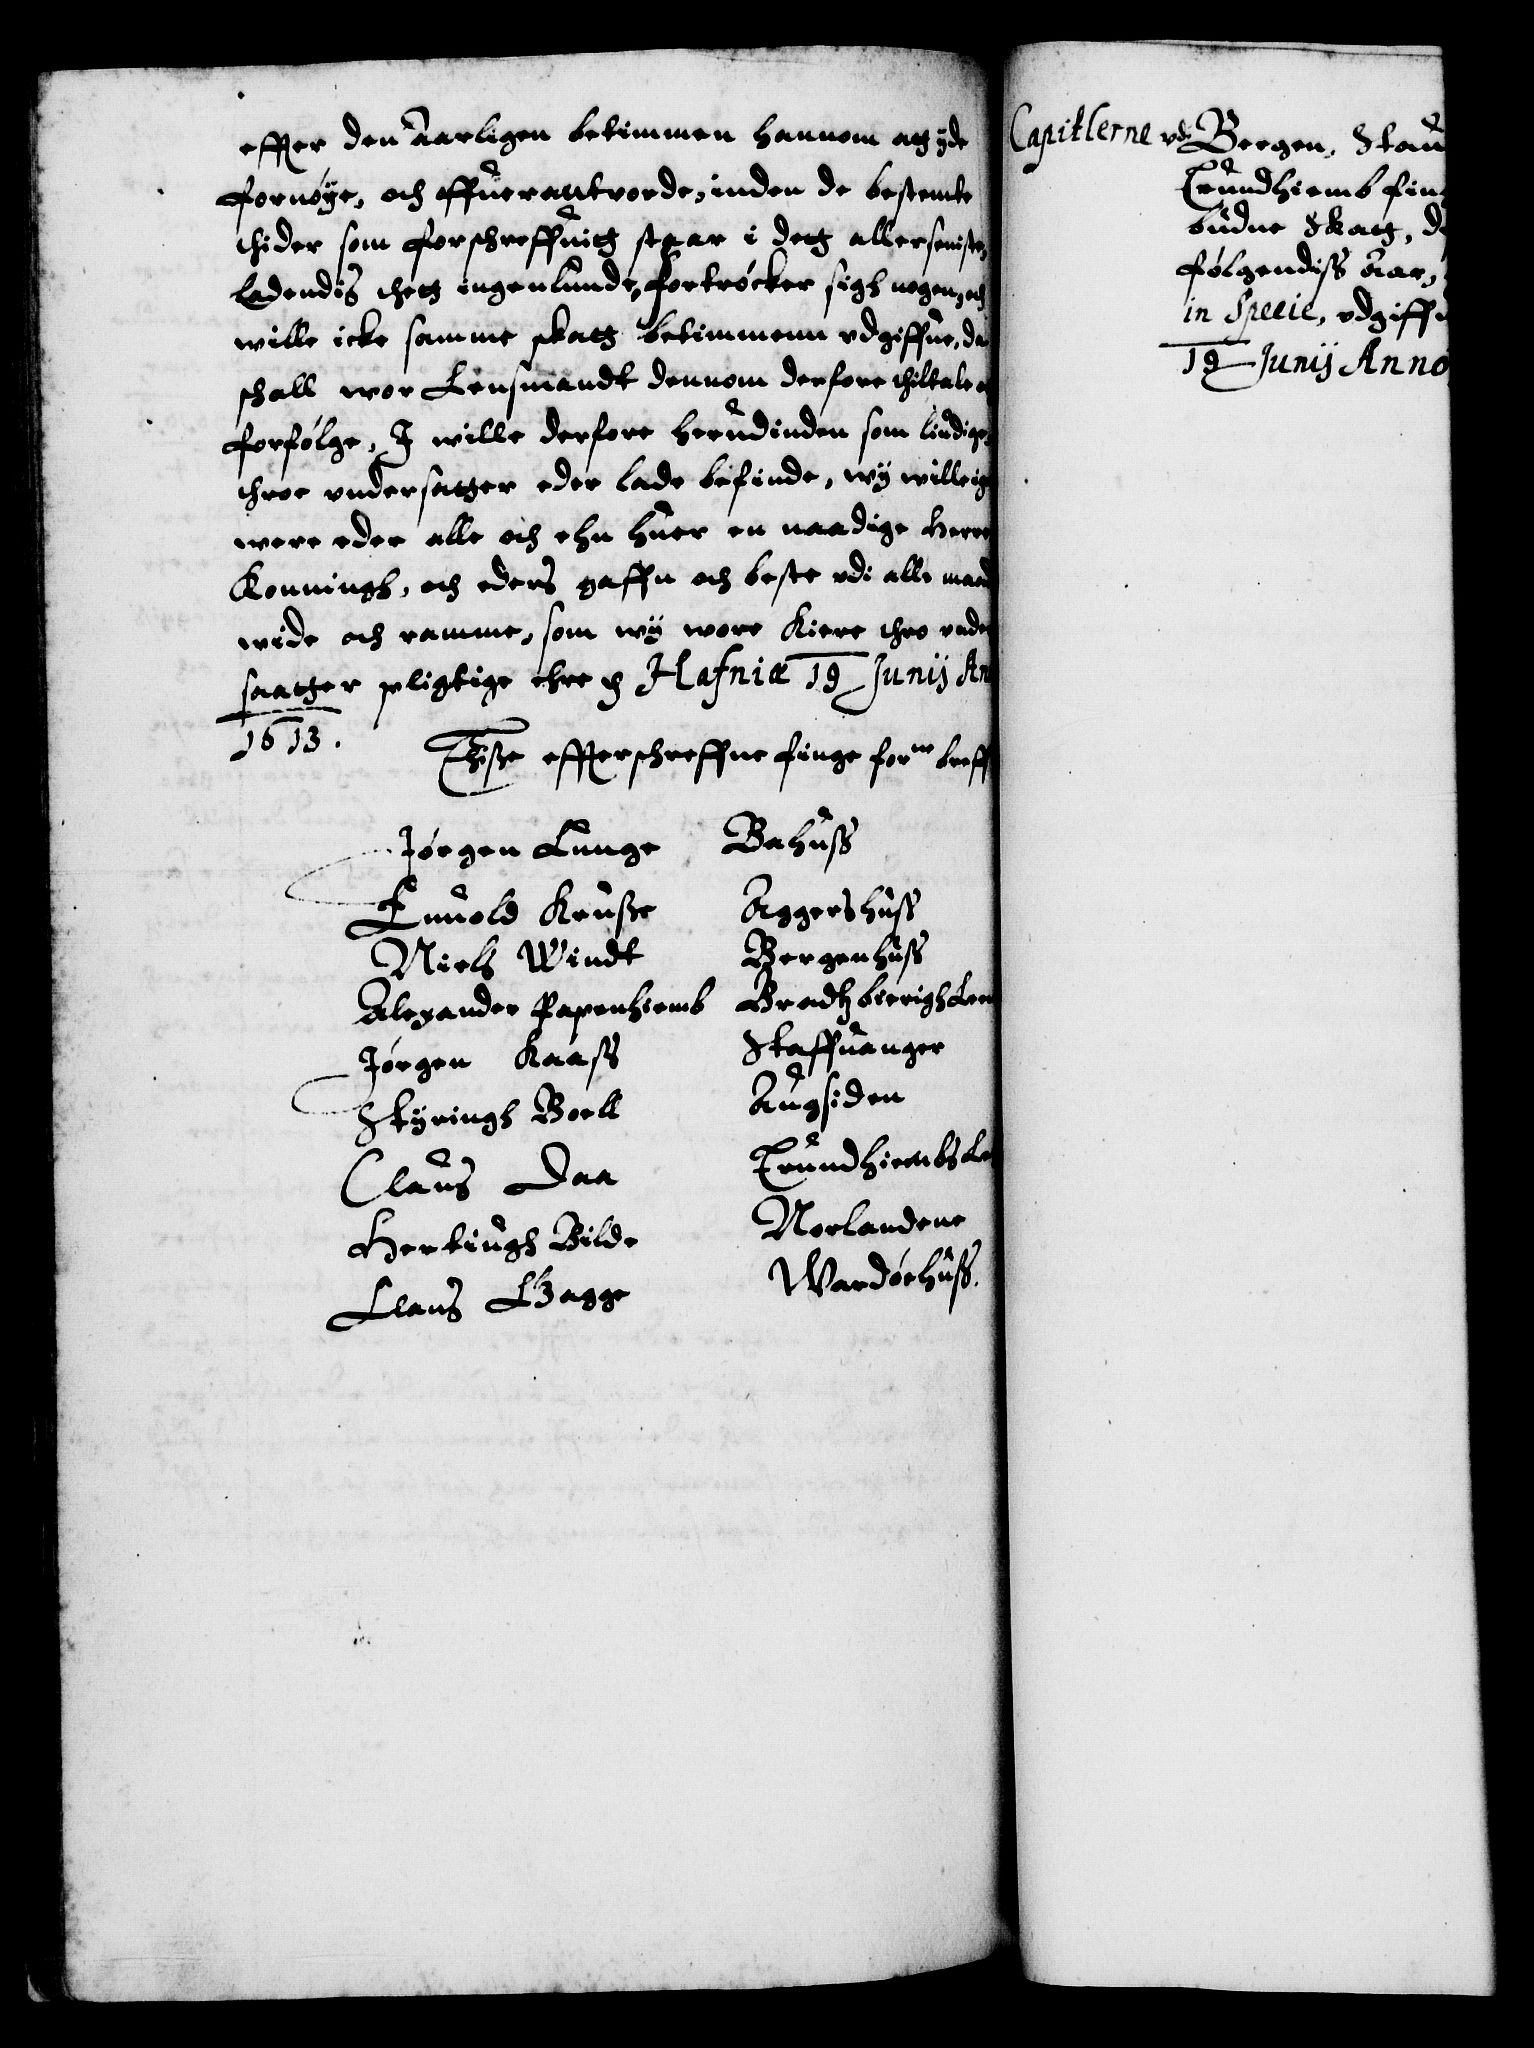 effter den Aarligen betimmen hannom att ÿde
fornøÿe, och offuerantvorde, inden de bestemte
thider som forschreffuitt staar i dett allerseniste,
Ladendis thett ingenlunde, fortrøcker sigh nogen, och
wille icke samme skatt betimmenn udgiffue, da
schall wor Lensmandt dennom derfore thiltale o
forfølge, I wille derfore herudinden som lÿdige
throe undersatter eder lade befinde, wÿ wille ig
were eder alle och ehn huer en naadige Herre
Konningh, och eders gaffn och beste udi alle maad
wide och ramme, som wÿ wore Kiere thro under
saatter pligtige ehre Hafniæ 19 Junij An
1613.
Thiße effterschreffne finge for:ne breff
Jørgen Lunge Bahuss
Enuold Kruße Aggershuss
Niels Windt Bergenhuss
Alexander Papenhiemb Bradtzbierigh Len
Jørgen Kaass Staffuanger
Stÿringh Boell Augsiden
Claus Daa Trundhiembs Le
Hertiugh Bilde Norlandene
Claus Gagge Wardøehuss.
Capitlerne udi Bergen, Stau
Trundhiemb fin
budne Skatt, d
følgendiss Aar,
in Specie, udgiffu
19 Junij Anno